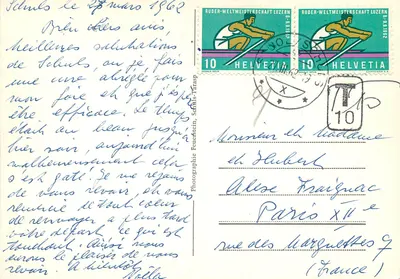 Schuls le 28 mars 1962
Bien chers amis
Meilleures salutations
de Schuls où je fais
une cure abrégée pour
mon foie et que j'espère
être efficace. Le temps
était au beau jusqu'à
hier soir, aujourd'hui
malheureusement cela
s'est gâté. Je me réjouis
de vous revoir, et vous
remercie de tout cœur
de renvoyer à plus tard
votre départ, ce qui est
touchant. Ainsi nous
aurons le plaisir de vous
revoir. A bientôt
Photographie Feuerstein, Schuls-Tarasp
RUDER-WELTMEISTERSCHAFT LUZERN
10 HELVETIA
RUDER-WELTMEISTERSCHAFT LUZERN
10 HELVETIA
T
10
Monsieur et Madame
et Hubert
Paris XIIe
rue des Marguettes 9
(France)